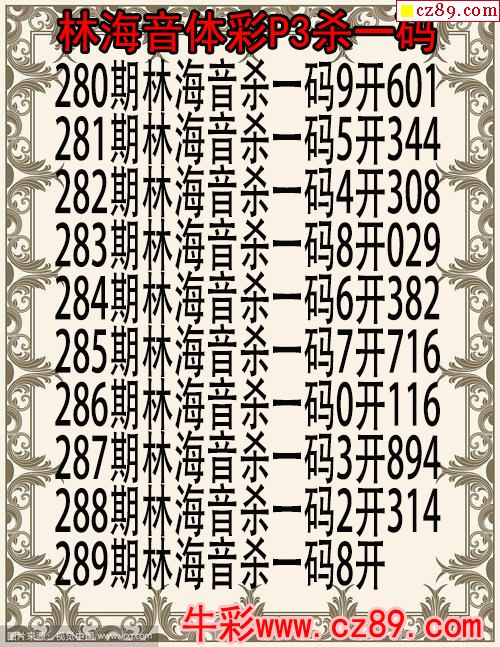 cz89.com
林海音体彩P3杀一码
280期林海音杀一码9开601
281期林海音杀一码5开344
282期林海音杀一码4开308
283期林海音杀一码8开029
284期林海音杀一码6开382
285期林海音杀一码7开716
286期林海音杀一码0开116
287期林海音杀一码3开894
288期林海音杀一码2开314
289期林海音杀一码8开
牛彩www.cz89.com
图片来源：视觉中国 www.vcg.com